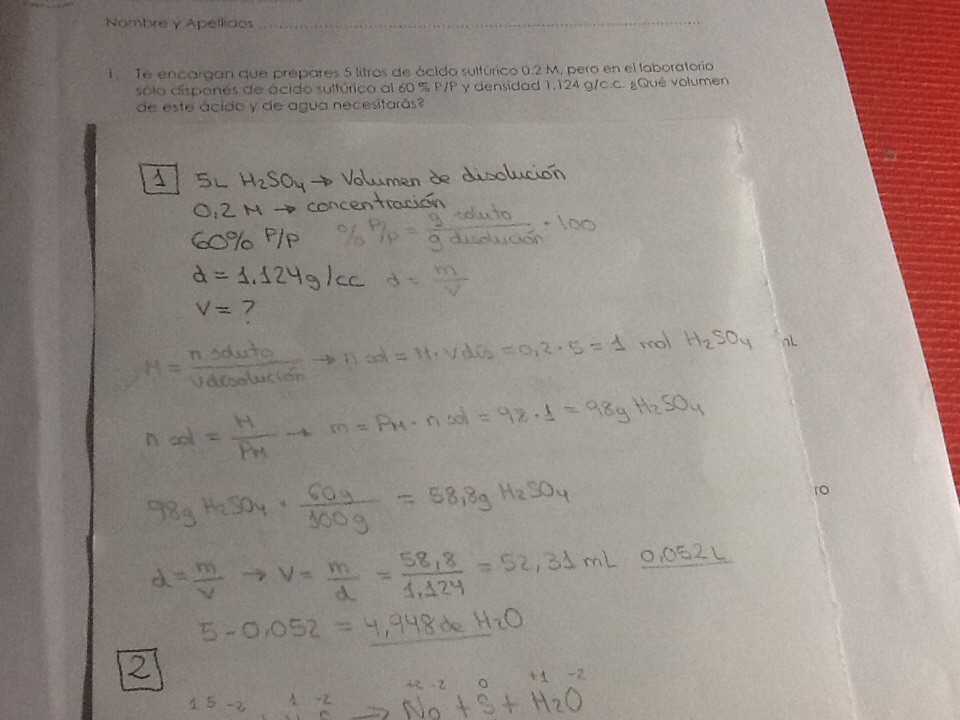 Nombre y Apellidos
1. Te encargan que prepares 5 litros de ácido sulfúrico 0.2 M, pero en el laboratorio
sólo dispones de ácido sulfúrico al 60 % P/P y densidad 1.124 g/c.c. ¿Qué volumen
de este ácido y de agua necesitarás?
1 5L H2SO4 → Volumen de disolución
0,2 M → concentración
60% P/P % P/P = g soluto / g disolución · 100
d = 1.124g/cc d = m / V
V = ?
M = n soluto / V disolución → n sol = M · V dis = 0,2 · 5 = 1 mol H2SO4
n sol = M / PM → m = PM · n sol = 98 · 1 = 98g H2SO4
98g H2SO4 · 60g / 100g = 58,8g H2SO4
ro
d = m / V → V = m / d = 58,8 / 1,124 = 52,31 mL 0,052 L
5 - 0,052 = 4,948 de H2O
2
+2 -2 0 +1 -2
1 5 -2 1 -2 → No + S + H2O